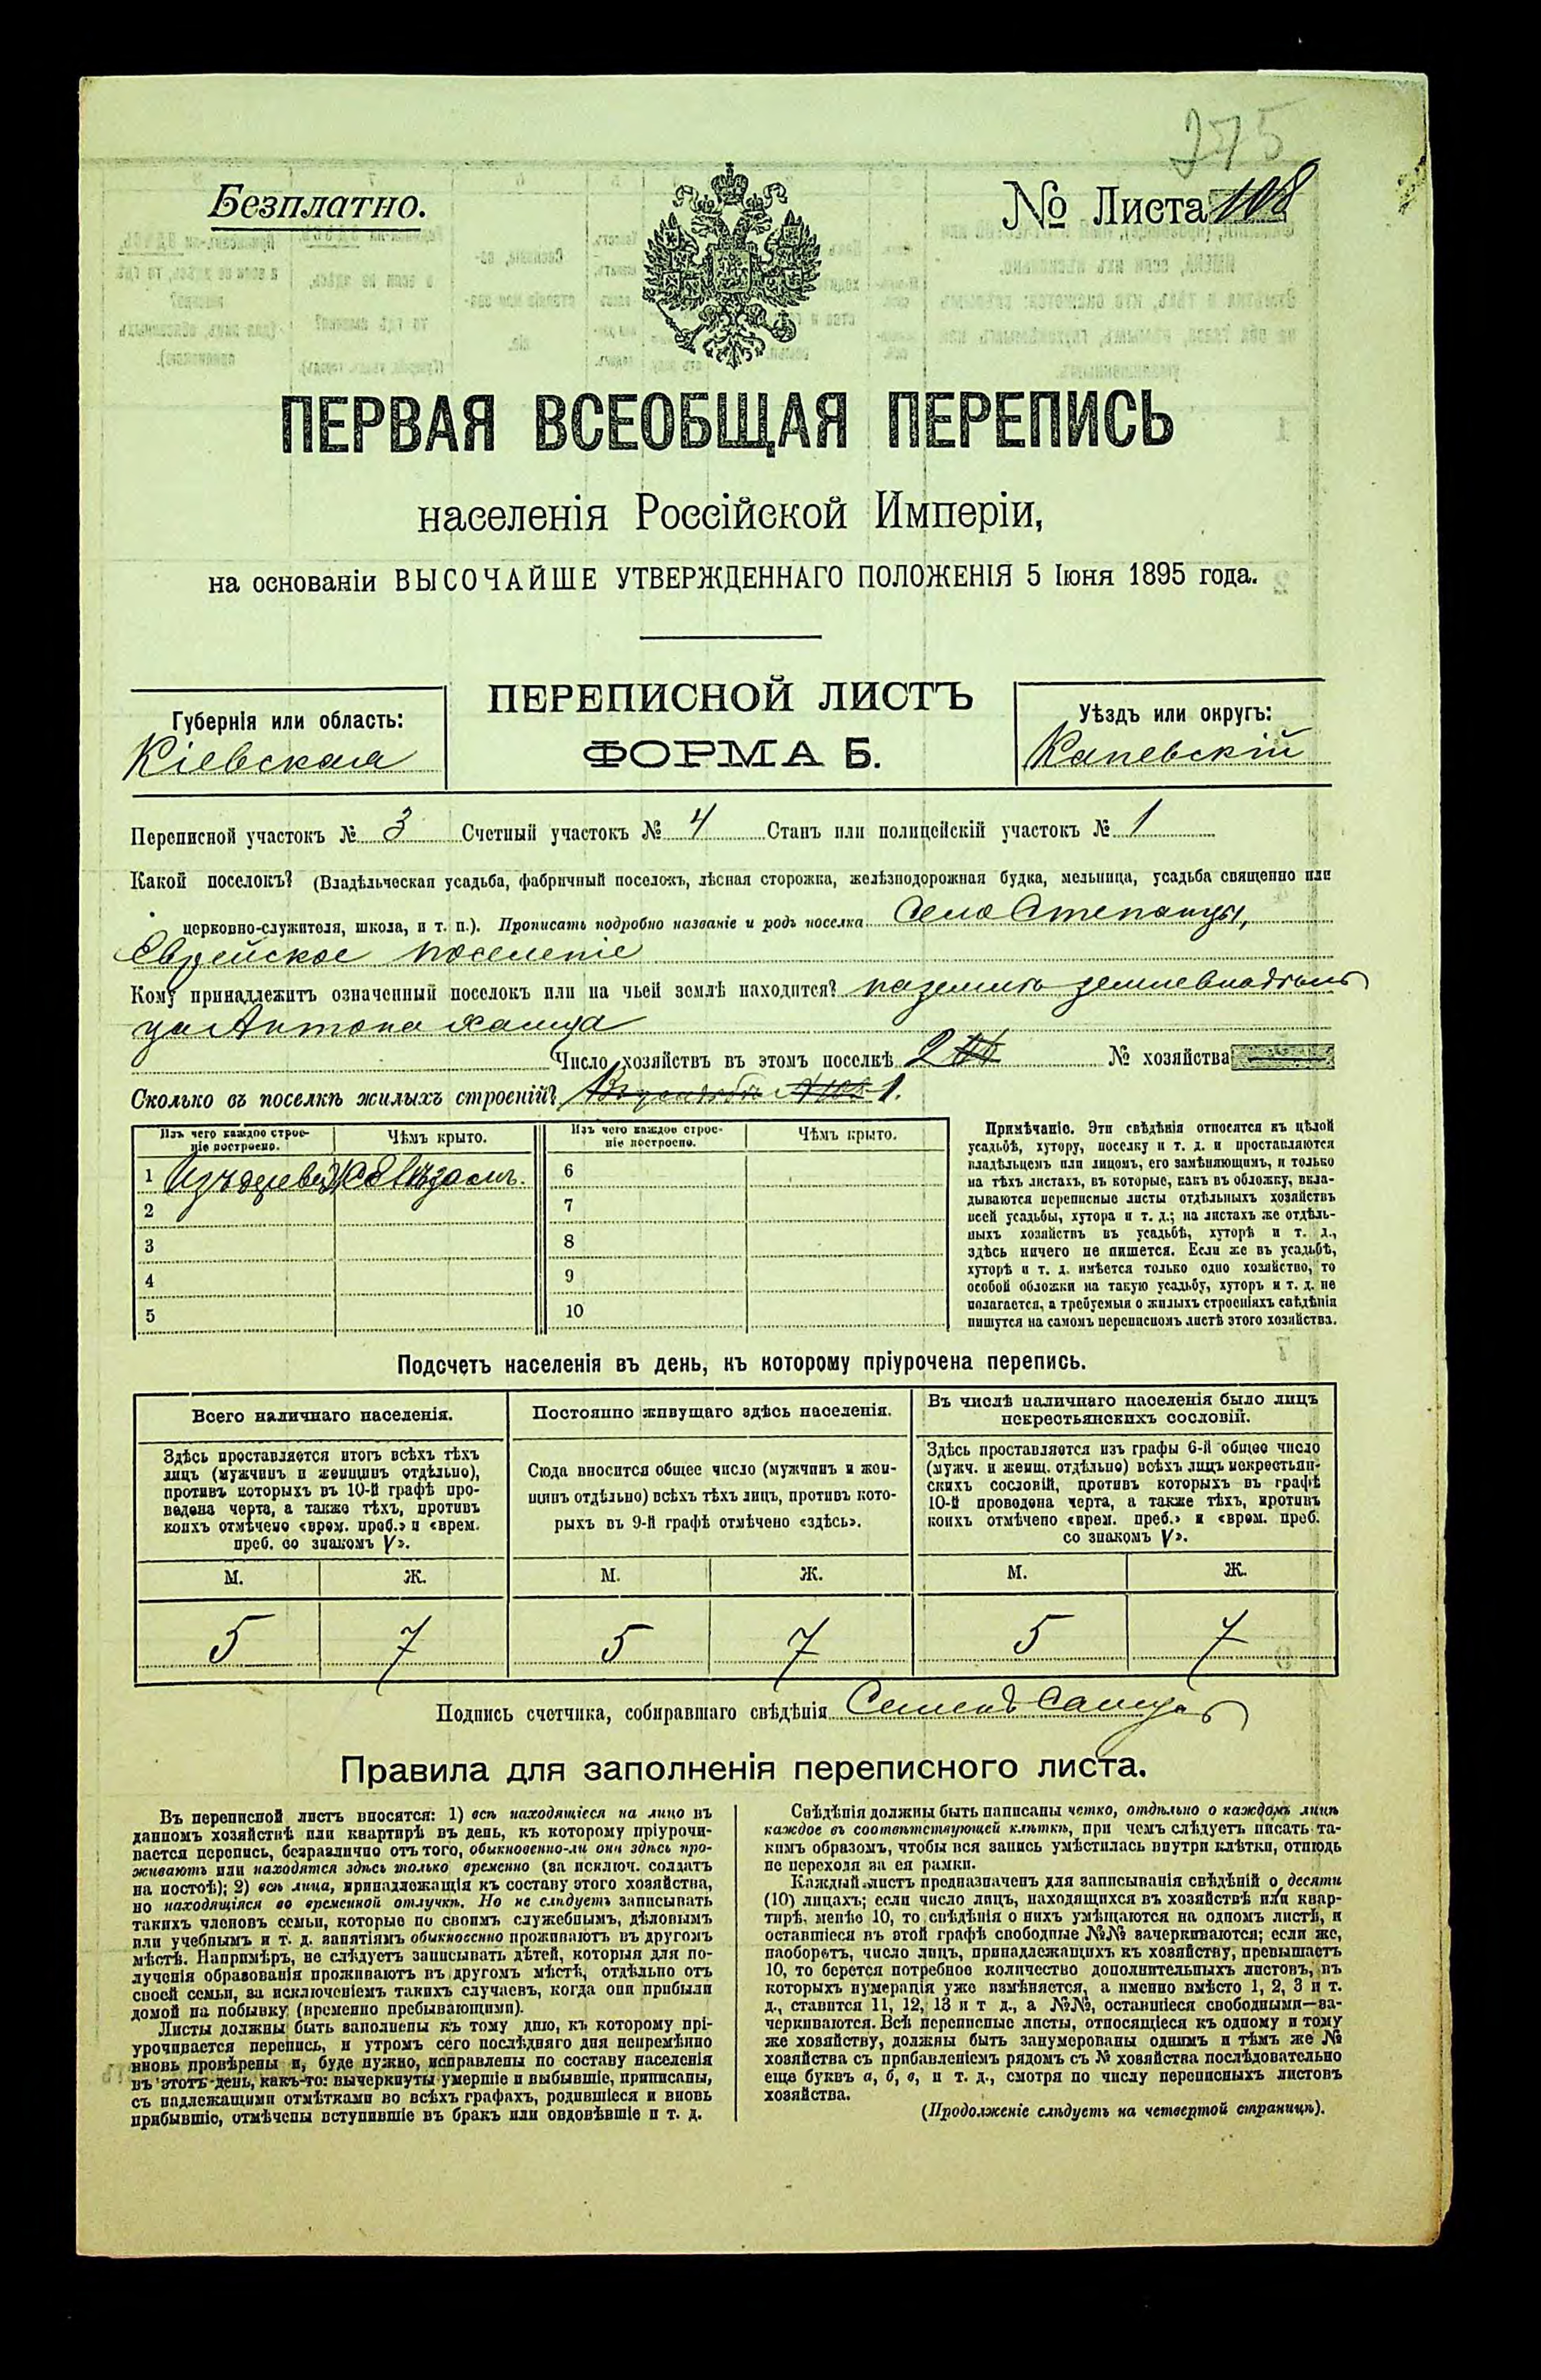 275
Безплатно.
№ Листа 108
ПЕРВАЯ ВСЕОБЩАЯ ПЕРЕПИСЬ
населенія Россійской Имперіи,
на основаніи ВЫСОЧАЙШЕ УТВЕРЖДЕННАГО ПОЛОЖЕНІЯ 5 Іюня 1895 года.
Губернія или область:
Кіевская
ПЕРЕПИСНОЙ ЛИСТЪ
ФОРМА Б.
Уѣздъ или округъ:
Каневскій
Переписной участокъ № 3 Счетный участокъ № 4 Станъ или полицейскій участокъ № 1
Какой поселокъ? (Владѣльческая усадьба, фабричный поселокъ, лѣсная сторожка, желѣзнодорожная будка, мельница, усадьба священно или
церковно-служителя, школа, и т. п.). Прописать подробно названіе и родъ поселка Село Степанцы,
Еврейское поселеніе
Кому принадлежитъ означенный поселокъ или на чьей землѣ находится? на земле землевладель
ца Антона
Число хозяйствъ въ этомъ поселкѣ 2 № хозяйства
Сколько въ поселкѣ жилыхъ строеній? 1.
Изъ чего каждое строеніе построено. Чѣмъ крыто. Изъ чего каждое строеніе построено. Чѣмъ крыто.
1 Изъ дерева 6
2 7
3 8
4 9
5 10
Примѣчаніе. Эти свѣдѣнія относятся къ цѣлой
усадьбѣ, хутору, поселку и т. д. и проставляются
владѣльцемъ или лицомъ, его замѣняющимъ, и только
на тѣхъ листахъ, въ которые, какъ въ обложку, вкла-
дываются переписные листы отдѣльныхъ хозяйствъ
всей усадьбы, хутора и т. д.; на листахъ же отдѣль-
ныхъ хозяйствъ въ усадьбѣ, хуторѣ и т. д.,
здѣсь ничего не пишется. Если же въ усадьбѣ,
хуторѣ и т. д. имѣется только одно хозяйство, то
особой обложки на такую усадьбу, хуторъ и т. д. не
полагается, а требуемыя о жилыхъ строеніяхъ свѣдѣнія
пишутся на самомъ переписномъ листѣ этого хозяйства.
Подсчетъ населенія въ день, къ которому пріурочена перепись.
Всего наличнаго населенія.
Здѣсь проставляется итогъ всѣхъ тѣхъ
лицъ (мужчинъ и женщинъ отдѣльно),
противъ которыхъ въ 10-й графѣ про-
ведена черта, а также тѣхъ, противъ
коихъ отмѣчено «врем. преб.» и «врем.
преб. со знакомъ V».
Постоянно живущаго здѣсь населенія.
Сюда вносится общее число (мужчинъ и жен-
щинъ отдѣльно) всѣхъ тѣхъ лицъ, противъ кото-
рыхъ въ 9-й графѣ отмѣчено «здѣсь».
Въ числѣ наличнаго населенія было лицъ
некрестьянскихъ сословій.
Здѣсь проставляется изъ графы 6-й общее число
(мужч. и женщ. отдѣльно) всѣхъ лицъ некрестьян-
скихъ сословій, противъ которыхъ въ графѣ
10-й проведена черта, а также тѣхъ, противъ
коихъ отмѣчено «врем. преб.» и «врем. преб.
со знакомъ V».
М. Ж. М. Ж. М. Ж.
5 7 5 7 5 7
Подпись счетчика, собиравшаго свѣдѣнія Семенъ
Правила для заполненія переписного листа.
Въ переписной листъ вносятся: 1) всѣ находящіеся на лицо въ
данномъ хозяйствѣ или квартирѣ въ день, къ которому пріурочи-
вается перепись, безразлично отъ того, обыкновенно-ли они здѣсь про-
живаютъ или находятся здѣсь только временно (за исключ. солдатъ
на постоѣ); 2) всѣ лица, принадлежащія къ составу этого хозяйства,
но находящіяся во временной отлучкѣ. Но не слѣдуетъ записывать
такихъ членовъ семьи, которые по своимъ служебнымъ, дѣловымъ
или учебнымъ и т. д. занятіямъ обыкновенно проживаютъ въ другомъ
мѣстѣ. Напримѣръ, не слѣдуетъ записывать дѣтей, которыя для по-
лученія образованія проживаютъ въ другомъ мѣстѣ, отдѣльно отъ
своей семьи, за исключеніемъ такихъ случаевъ, когда они прибыли
домой на побывку (временно пребывающими).
Листы должны быть заполнены къ тому дню, къ которому прі-
урочивается перепись, и утромъ сего послѣдняго дня непремѣнно
вновь провѣрены и, буде нужно, исправлены по составу населенія
въ этотъ день, какъ-то: вычеркнуты умершіе и выбывшіе, приписаны,
съ надлежащими отмѣтками во всѣхъ графахъ, родившіеся и вновь
прибывшіе, отмѣчены вступившіе въ бракъ или овдовѣвшіе и т. д.
Свѣдѣнія должны быть написаны четко, отдѣльно о каждомъ лицѣ
каждое въ соотвѣтствующей клѣткѣ, при чемъ слѣдуетъ писать та-
кимъ образомъ, чтобы вся запись умѣстилась внутри клѣтки, отнюдь
не переходя за ея рамки.
Каждый листъ предназначенъ для записыванія свѣдѣній о десяти
(10) лицахъ; если число лицъ, находящихся въ хозяйствѣ или квар-
тирѣ, менѣе 10, то свѣдѣнія о нихъ умѣщаются на одномъ листѣ, и
оставшіеся въ этой графѣ свободные №№ зачеркиваются; если же,
наоборотъ, число лицъ, принадлежащихъ къ хозяйству, превышаетъ
10, то берется потребное количество дополнительныхъ листовъ, въ
которыхъ нумерація уже измѣняется, а именно вмѣсто 1, 2, 3 и т.
д., ставится 11, 12, 13 и т д., а №№, оставшіеся свободными—за-
черкиваются. Всѣ переписные листы, относящіеся къ одному и тому
же хозяйству, должны быть занумерованы однимъ и тѣмъ же №
хозяйства съ прибавленіемъ рядомъ съ № хозяйства послѣдовательно
еще буквъ а, б, в, и т. д., смотря по числу переписныхъ листовъ
хозяйства.
(Продолженіе слѣдуетъ на четвертой страницѣ).